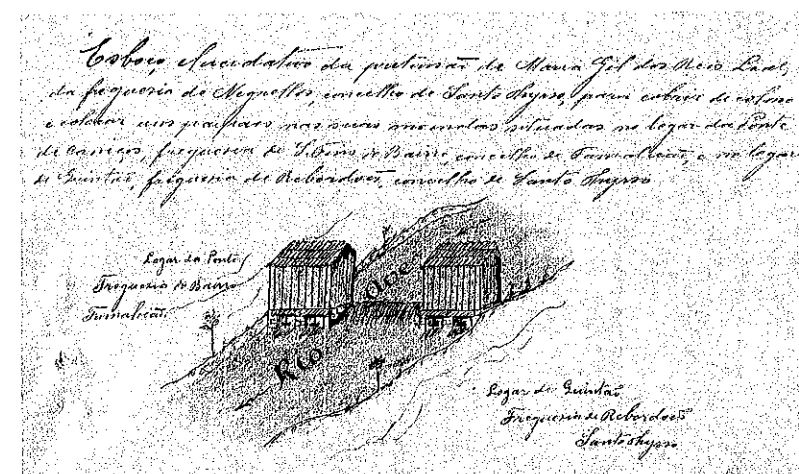 Esboço elucidativo da pretensão de Maria Gil dos Reis Leal,
da freguesia de Negrellos, concelho de Santo Thyrso, para cobrir de
e colocar uns nas suas moendas situadas no logar da Ponte
de Caniços, freguesia de Bairro concelho de Famalicão, e no logar
de Quintão, freguesia de Rebordões, concelho de Santo Thyrso
Logar da Ponte
Freguesia de Bairro
Famalicão
Rio Ave
Logar de Quintão
Freguesia de Rebordões
Santo Thyrso